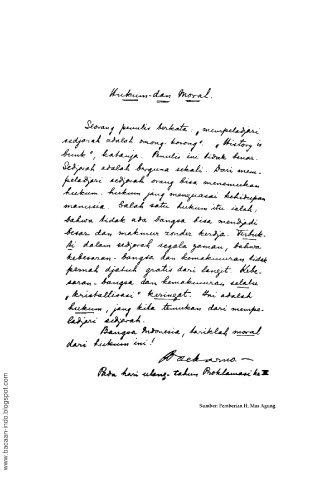 Hukum dan Moral.
Seorang penulis berkata: "mempeladjari
sedjarah adalah omong kosong", "History is
bunk", katanja. Penulis ini tidak benar.
Sedjarah adalah berguna sekali. Dari mem-
peladjari sedjarah orang bisa menemukan
hukum-hukum jang menguasai kehidupan
manusia. Salah satu hukum itu ialah:
bahwa tidak ada bangsa bisa mendjadi
besar dan makmur zonder kerdja. Terbuk-
ti dalam sedjarah segala zaman, bahwa
kebesaran-bangsa dan kemakmuran tidak
pernah djatuh gratis dari langit. Kebe-
saran-bangsa dan kemakmuran selalu
"kristallisasi" keringat. Ini adalah
hukum, jang kita temukan dari mempe-
ladjari sedjarah.
Bangsa Indonesia, tariklah moral
dari hukum ini!
Soekarno
Pada hari ulang-tahun Proklamasi ke II
Sumber: Pemberian H. Mas Agung
www.bacaan-indo.blogspot.com